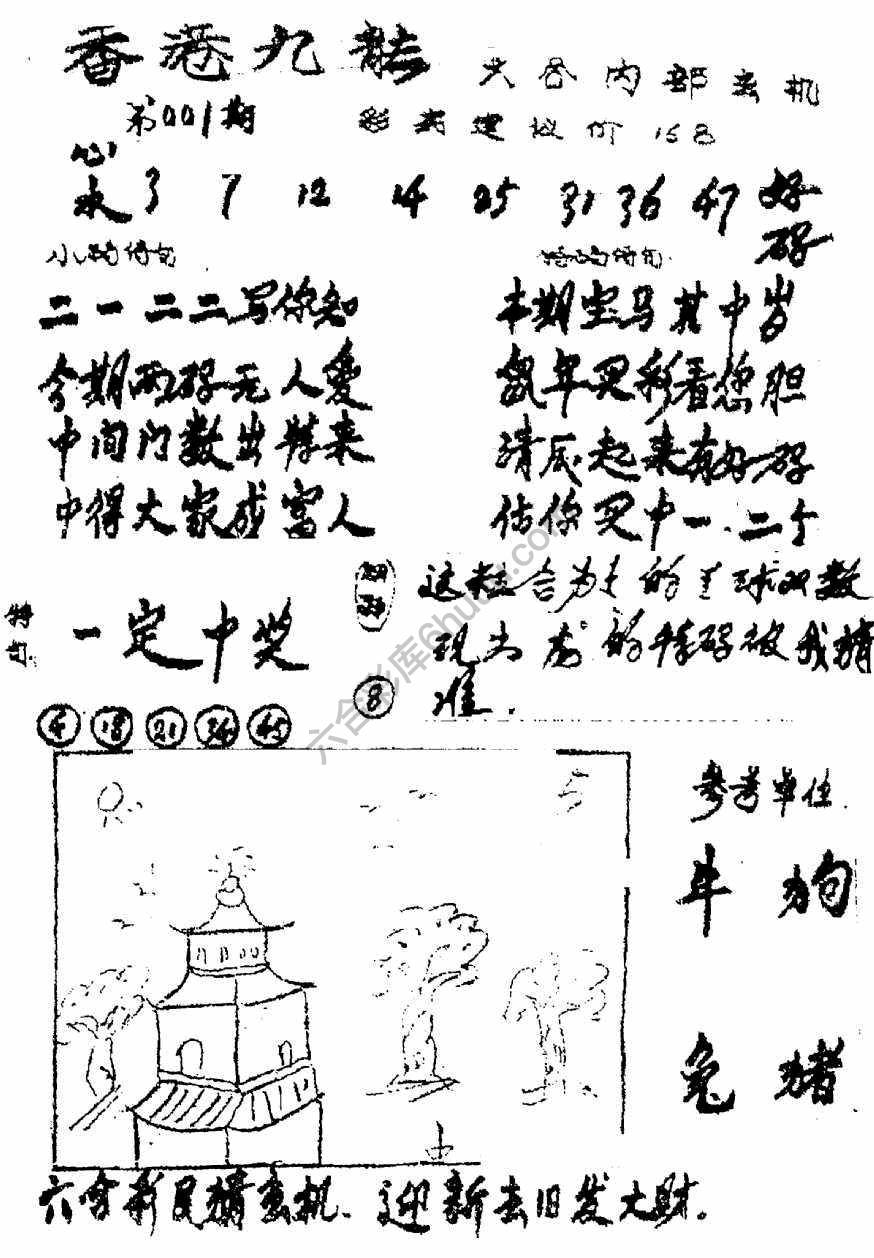 香港九龙
六合内部玄机
第001期
彩友建议价168
心水 3 7 12 14 25 31 36 47 好码
小码诗句
特码诗句
二一二二写你知
今期两码无人爱
中间门数出特来
中得大家成富人
本期宝马其中岁
鼠年买彩看您胆
清辰起来有好码
估你买中一.二个
特句
一定中奖
这粒合为七的
球双数
现为
的特码被我猜
准.
8
4 18 21 34 45
参考单位
牛 狗
兔 猪
六合彩民猜玄机. 迎新去旧发大财.
六合彩库6hucc.com